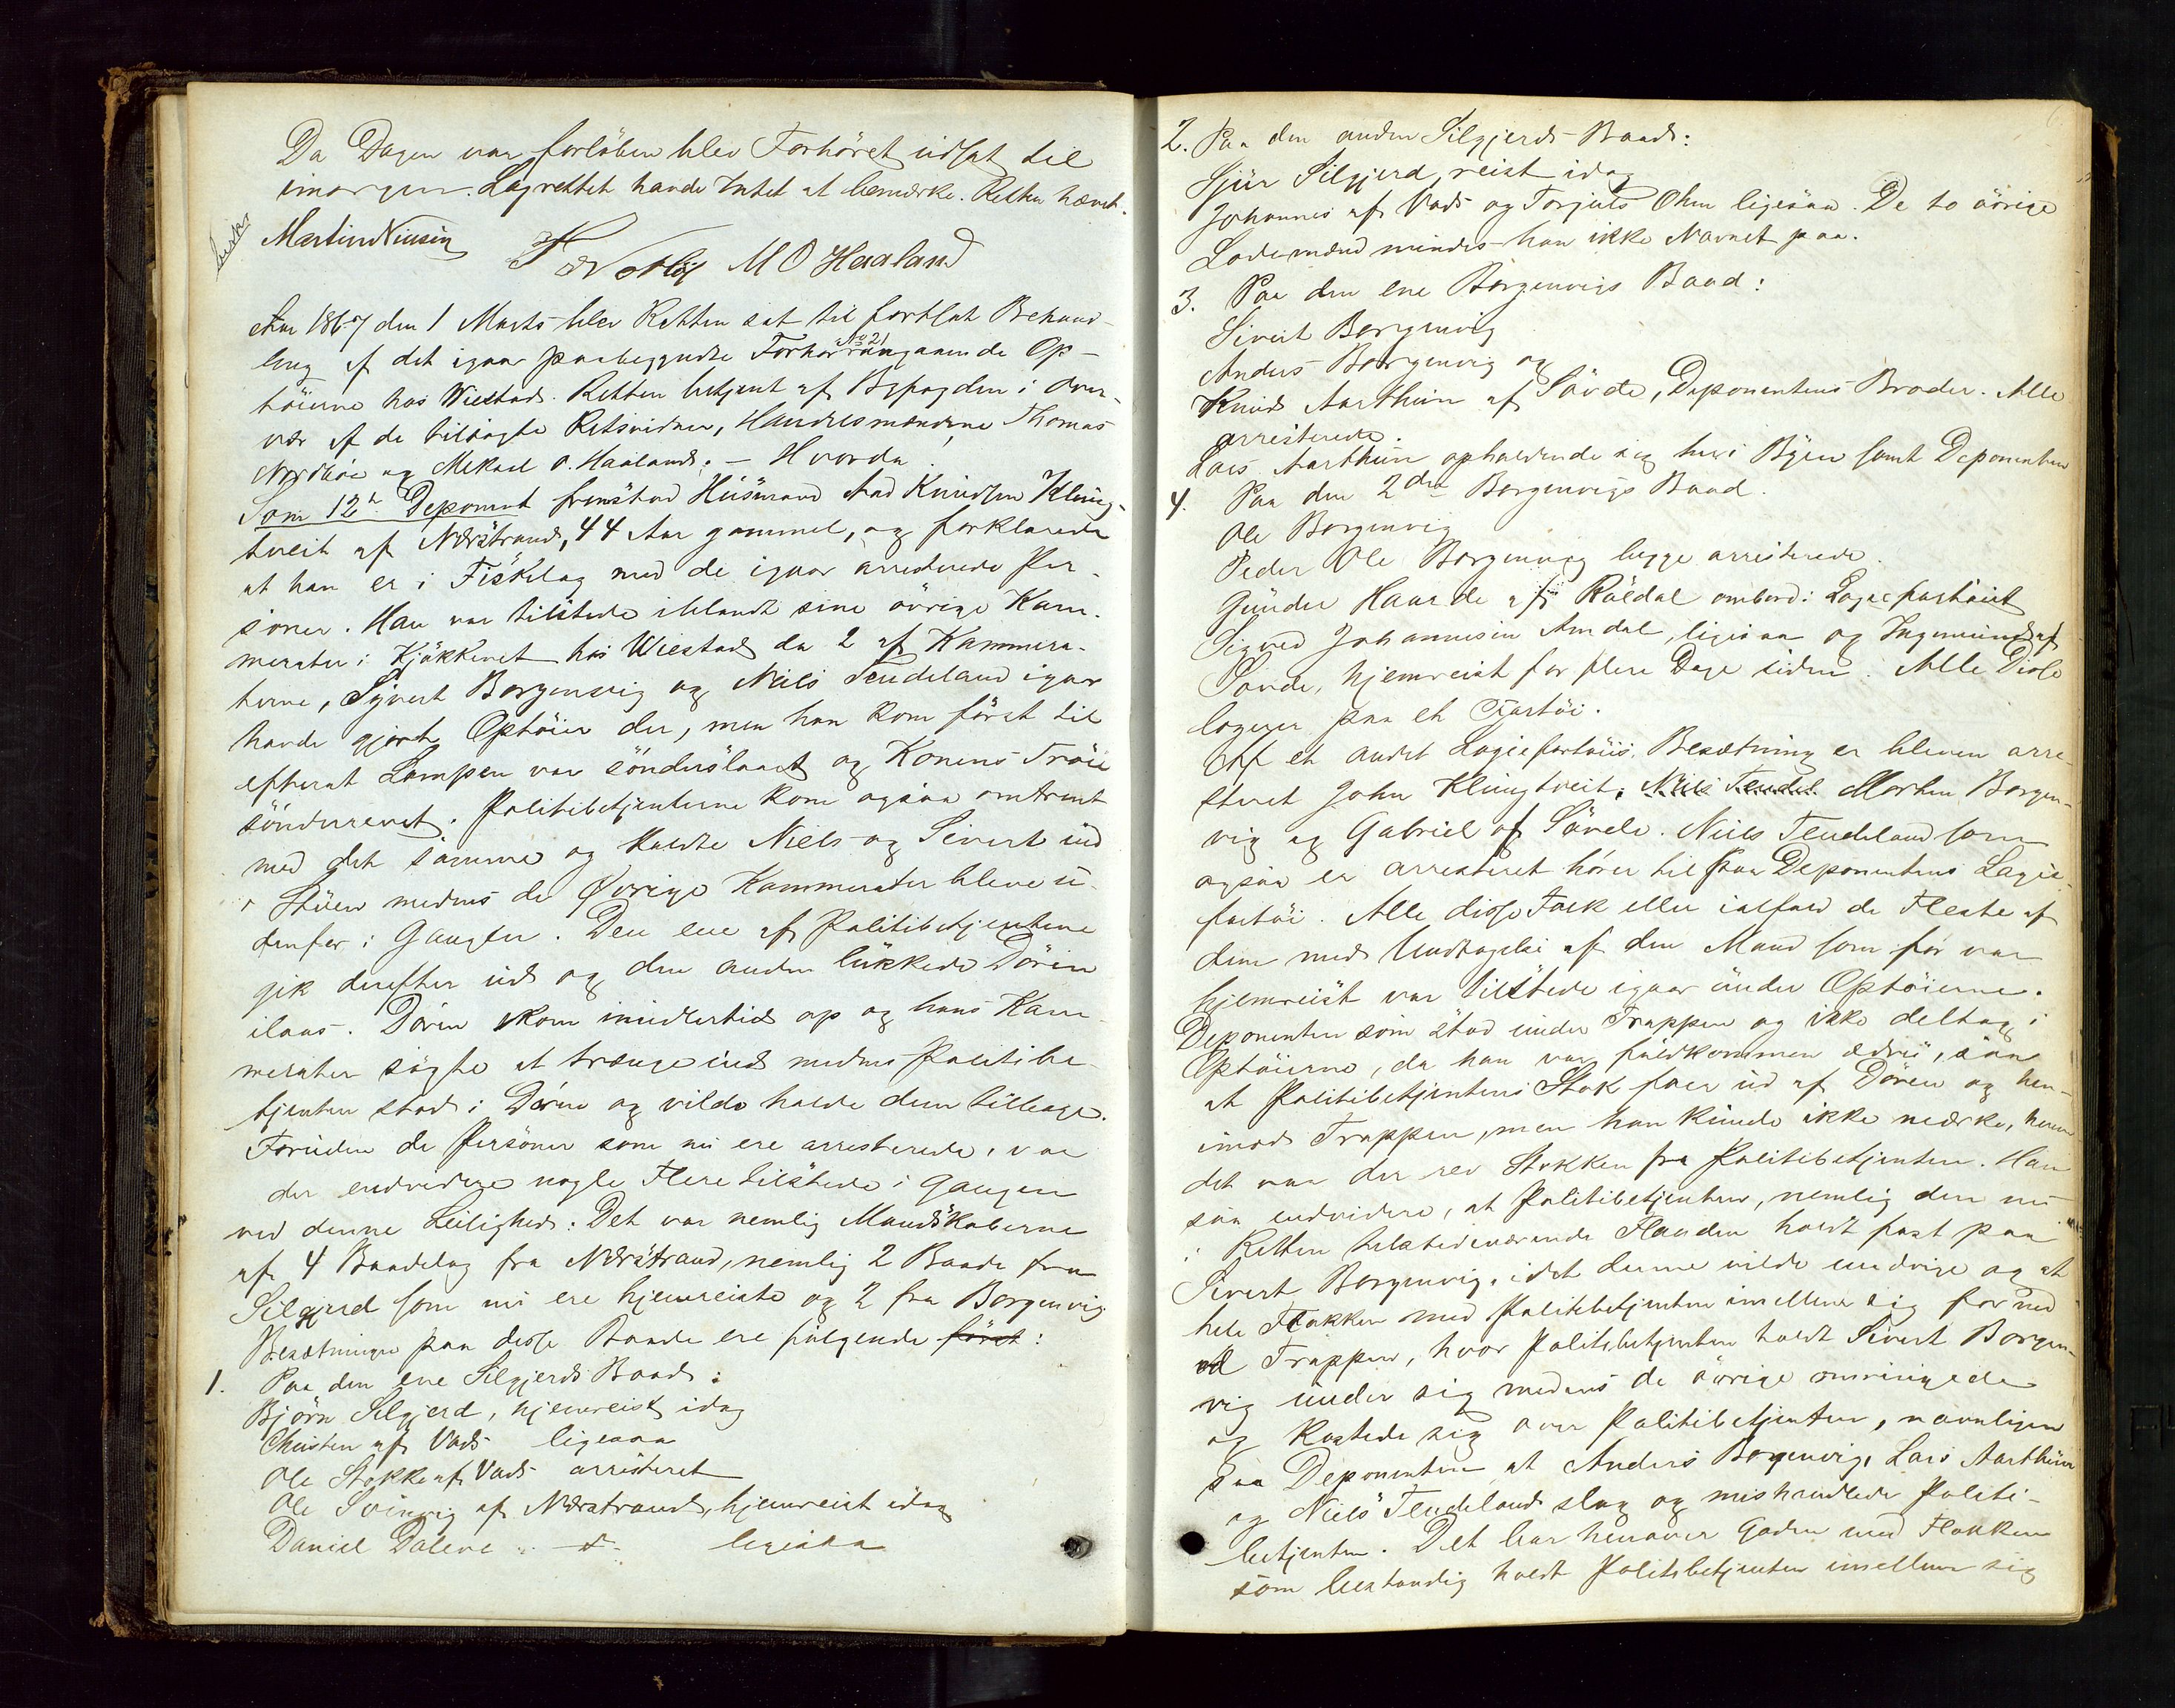 Da Dagen var forløben blev Forhøret udsat til
imorgen. Lagrettet havde Intet at bemærke. Retten hævet.
Martin Nilsen
M O Haaland
Aar 1867 den 1 Marts blev Retten sat til fortsat Behand-
ling af det igaar paabegyndte Forhør No 21 angaaende Op-
tøierne hos Wiestad. Retten betjent af Byfogden i Over-
vær af de tilsagte Retsvidner, Handelsmændene Thomas
Nordbøe og Mikael O. Haaland. – Hvorda
Som 12te Deponent fremstod Husmand Aad Knudsen Kling-
tveit af Nærstrand, 44 Aar gammel, og forklarede
at han er i Fiskelag med de igaar arresterede Per-
soner. Han var tilstede iblandt sine øvrige Kam-
merater i Kjøkkenet hos Wiestad da 2 af Kammera-
terne, Syvert Borgenvig og Niels Tendeland igaar
havde gjort Optøier der, men han kom først til
efterat Lampen var sønderslaaet og Konens Trøie
sønderrevet. Politibetjenterne kom ogsaa omtrent
med det samme og kaldte Niels og Sivert ind
i Stuen medens de Øvrige Kammerater bleve u-
denfor i Gangen. Den ene af Politibetjentene
gik derefter ud og den anden lukkede Døren
ilaas. Døren kom imidlertid op og hans Kam-
merater søgte at trænge ind medens Politibe-
tjenten stod i Døren og vilde holde dem tilbage.
Foruden de Personer som nu ere arresterede, var
der endvidere nogle Flere tilstede i Gangen
ved denne Leilighed: Det var nemlig Mandskaberne
af 4 Baadelag fra Nærstrand, nemlig 2 Baade fra
Silgjerd som nu ere hjemreiste og 2 fra Borgenvig
Besætningen paa disse Baade ere følgende først:
1. Paa den ene Silgjerds Baad:
Bjørn Silgjerd, hjemreist idag
Christen af Vads ligesaa
Ole Stokke af Vads arresteret
Ole Svinvig af Nærstrand, hjemreist idag
Daniel Dalene – d – ligesaa
2. Paa den anden Silgjerds Baad:
Sjur Silgjerd, reist idag
Johannes af Vads og Torjuls Ohm ligesaa. De to øvrige
Lodsmænd mindes han ikke Navnet paa.
3. Paa den ene Borgenvigs Baad:
Sivert Borgenvig
Anders Borgenvig og
Knud Aarthun af Søvde, Deponentens Broder. Alle
arresterede.
Lars Aarthun opholdende sig her i Byen samt Deponenten
4. Paa den 2den Borgenvigs Baad.
Ole Borgenvig
Peder Ole Borgenvig begge arresterede.
Gunder Haarde af Røldal ombord i Logiefartøiet
Sigved Johannesen Amdal, ligesaa og Ingemund af
Søvde, hjemreist for flere Dage siden. Alle Disse
logerer paa et Fartøi.
Af et andet Logiefartøis Besætning er bleven arre-
steret John Klingtveit, Niels Tendel Morten Borgen-
vig og Gabriel af Søvde. Niels Tendeland som
ogsaa er arresteret hører til paa Deponentens Logie-
fartøi. Alle disse Folk eller ialfald de Fleste af
dem med Undtagelse af den Mand som før var
hjemreist var tilstede igaar under Optøierne.
Deponenten som stod under Trappen og ikke deltog i
Optøierne, da han var fuldkommen ædru, saa
at Politibetjentens Stok foer ud af Døren og hen-
imod Trappen, men han kunde ikke mærke, hvem
det var der rev Stokken fra Politibetjenten. Han
saa endvidere, at Politibetjenten, nemlig den nu
i Retten tilstedeværende Flanden holdt fast paa
Sivert Borgenvig, idet denne vilde undvige og at
hele Flokken med Politibetjenten imellem sig for ned
ad Trappen, hvor Politibetjenten holdt Sivert Borgen-
vig under sig medens de øvrige omringede
og kastede sig over Politibetjenten, navnligen
saa Deponenten at Anders Borgenvig, Lars Aarthun
og Niels Tendeland slog og mishandlede Politi-
betjenten. Det bar henover Gaden med Flokken
som bestandig holdt Politibetjenten imellem sig